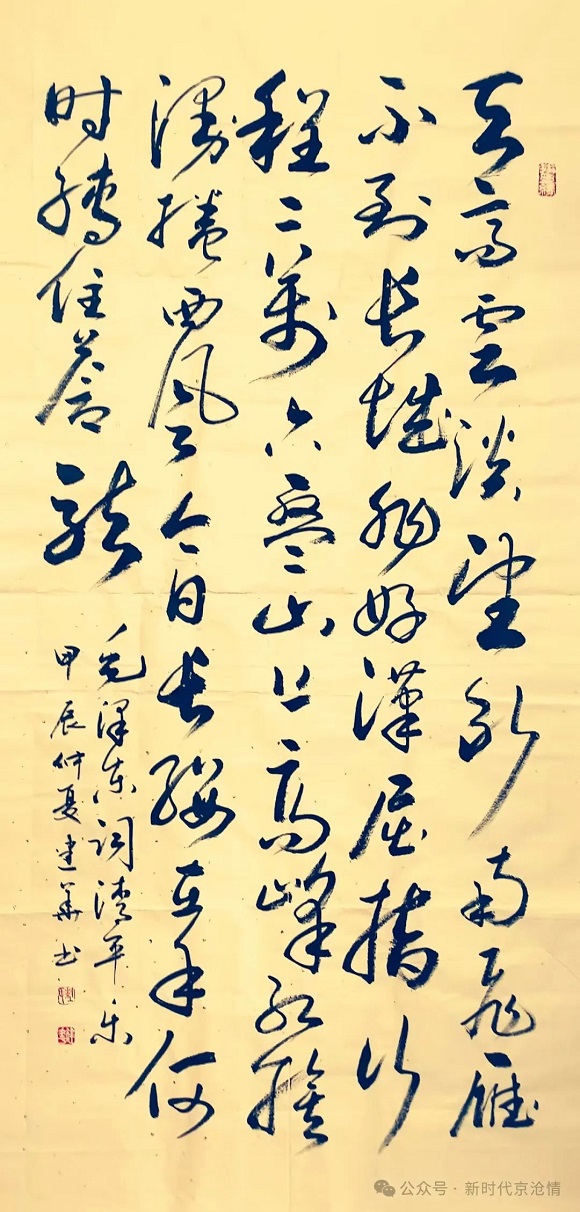 天高雲淡望断南飛雁
不到长城非好漢屈指行
程二萬六盘山上高峰红旗
漫捲西风今日长缨在手何
时缚住蒼龍
毛泽东词清平乐
甲辰仲夏建華书
公众号 · 新时代京沧情